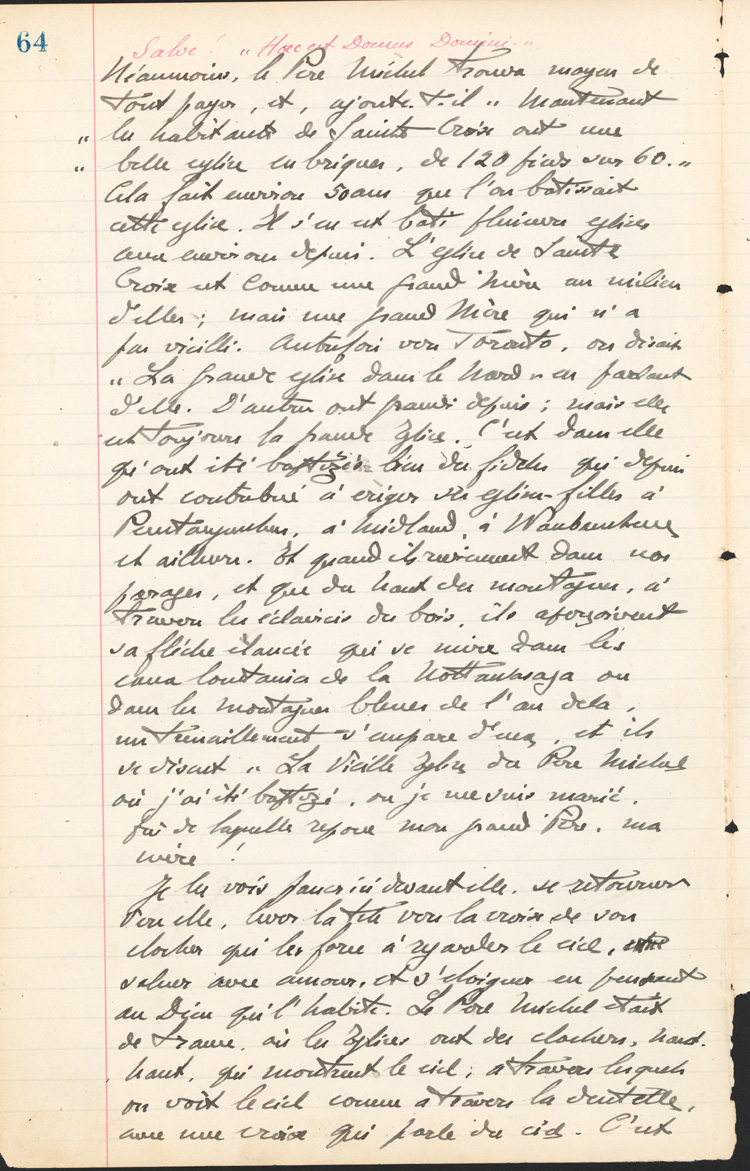 64
Salve! „ Haec est Domus Domini. "
Néanmoins, le Père Michel trouva moyen de
tout payer, et, ajoute-t-il „ Maintenant
„ les habitants de Sainte Croix ont une
„ belle eglise en briques, de 120 pieds sur 60. „
Cela fait environ 50 ans que l'on batissait
cette eglise. Il s'en est bâti plusieurs eglises
aux environs depuis. L'Eglise de Sainte
Croix est comme une grand'Mère au milieu
d'elles ; mais une grand Mère qui n'a
pas vieilli. Autrefois vers Toronto, on disait
„ La grande eglise dans le Nord „ en parlant
d'elle. D'autres ont grandi depuis ; mais elle
est toujours la grande Eglise. C'est dans elle
qu'ont été baptizés bien des fidèles qui depuis
ont contribué à eriger ses eglises-filles à
Penetanguishene, à Midland, à Waubaushene,
et ailleurs. Et quand ils reviennent dans nos
parages, et que du haut des montagnes, à
travers les éclaircis du bois, ils aperçoivent
sa flèche élancée qui se mire dans les
eaux lointaines de la Nottawasaga ou
dans les montagnes bleues de l'au dela,
un tressaillement s'empare d'eux, et ils
se disent „ La Vieille Eglise du Père Michel
où j'ai été baptizé, ou je me suis marié,
près de laquelle repose mon grand Père, ma
mère !
Je les vois passer ici devant elle, se retourner
vers elle, lever la tête vers la croix de son
clocher qui les force à regarder le ciel,
saluer avec amour, et s'eloigner en pensant
au Dieu qui l'habite. Le Père Michel etait
de France, où les Eglises ont des clochers, haut,
haut, qui montrent le ciel ; a travers lesquels
on voit le ciel comme a travers la dentelle,
avec une croix qui parle du ciel. C'est